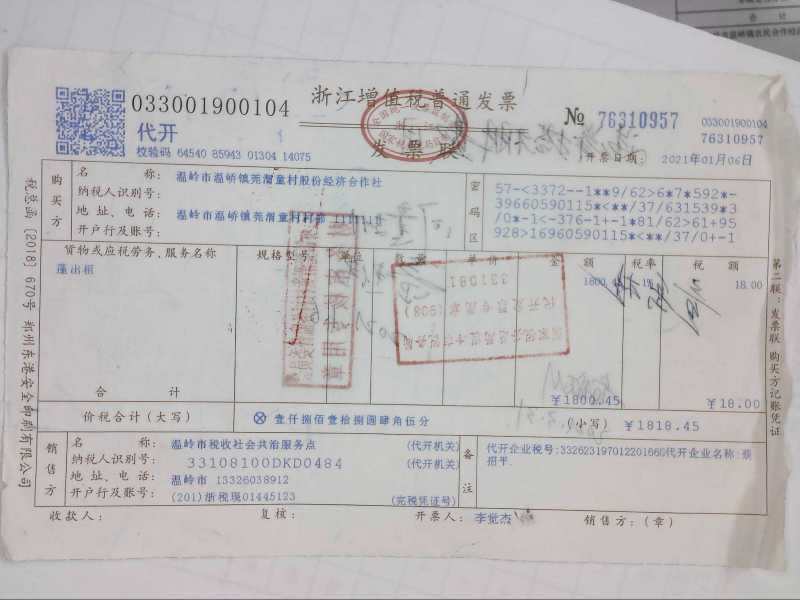 合 计
033001900104
浙江增值税普通发票
№ 76310957
033001900104
76310957
代开
发票联
校验码 64540 85943 01304 14075
开票日期: 2021年01月06日
购买方
名 称: 温岭市温峤镇莞渭童村股份经济合作社
纳税人识别号:
地 址、电 话: 温岭市温峤镇莞渭童村村部 11111111
开户行及账号:
密码区
57-<3372--1**9/62>6*7*592*-
39660590115*<**/37/631539*3
/0*-1<-376-1+-1*81/62>61+95
928>16960590115*<**/37/0+-1
货物或应税劳务、服务名称 规格型号 单位 数量 单价 金 额 税率 税 额
蓬出租 1800.45 1% 18.00
国家税务总局温岭市税务局
代开发票专用章(908)
331081
合 计 ￥1800.45 ￥18.00
价税合计(大写) ⊗ 壹仟捌佰壹拾捌圆肆角伍分 (小写) ￥1818.45
销售方
名 称: 温岭市税收社会共治服务点 (代开机关)
纳税人识别号: 33108100DKD0484 (代开机关)
地 址、电 话: 温岭市 13326038912
开户行及账号: (201)浙税现01445123 (完税凭证号)
备注
代开企业税号:332623197012201660代开企业名称:蔡
招平.
收款人: 复核: 开票人: 李觉杰 销售方:(章)
税总函〔2018〕670号 郑州东港安全印刷有限公司
第二联:发票联 购买方记账凭证